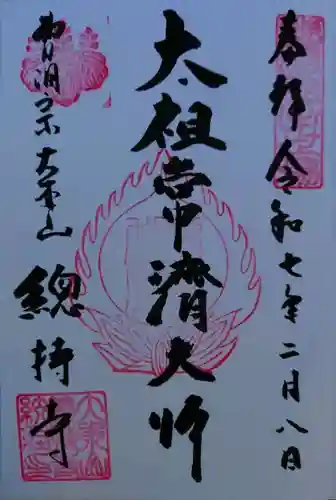 奉拝 令和七年二月八日
太祖常済大師
曹洞宗大本山
總持寺